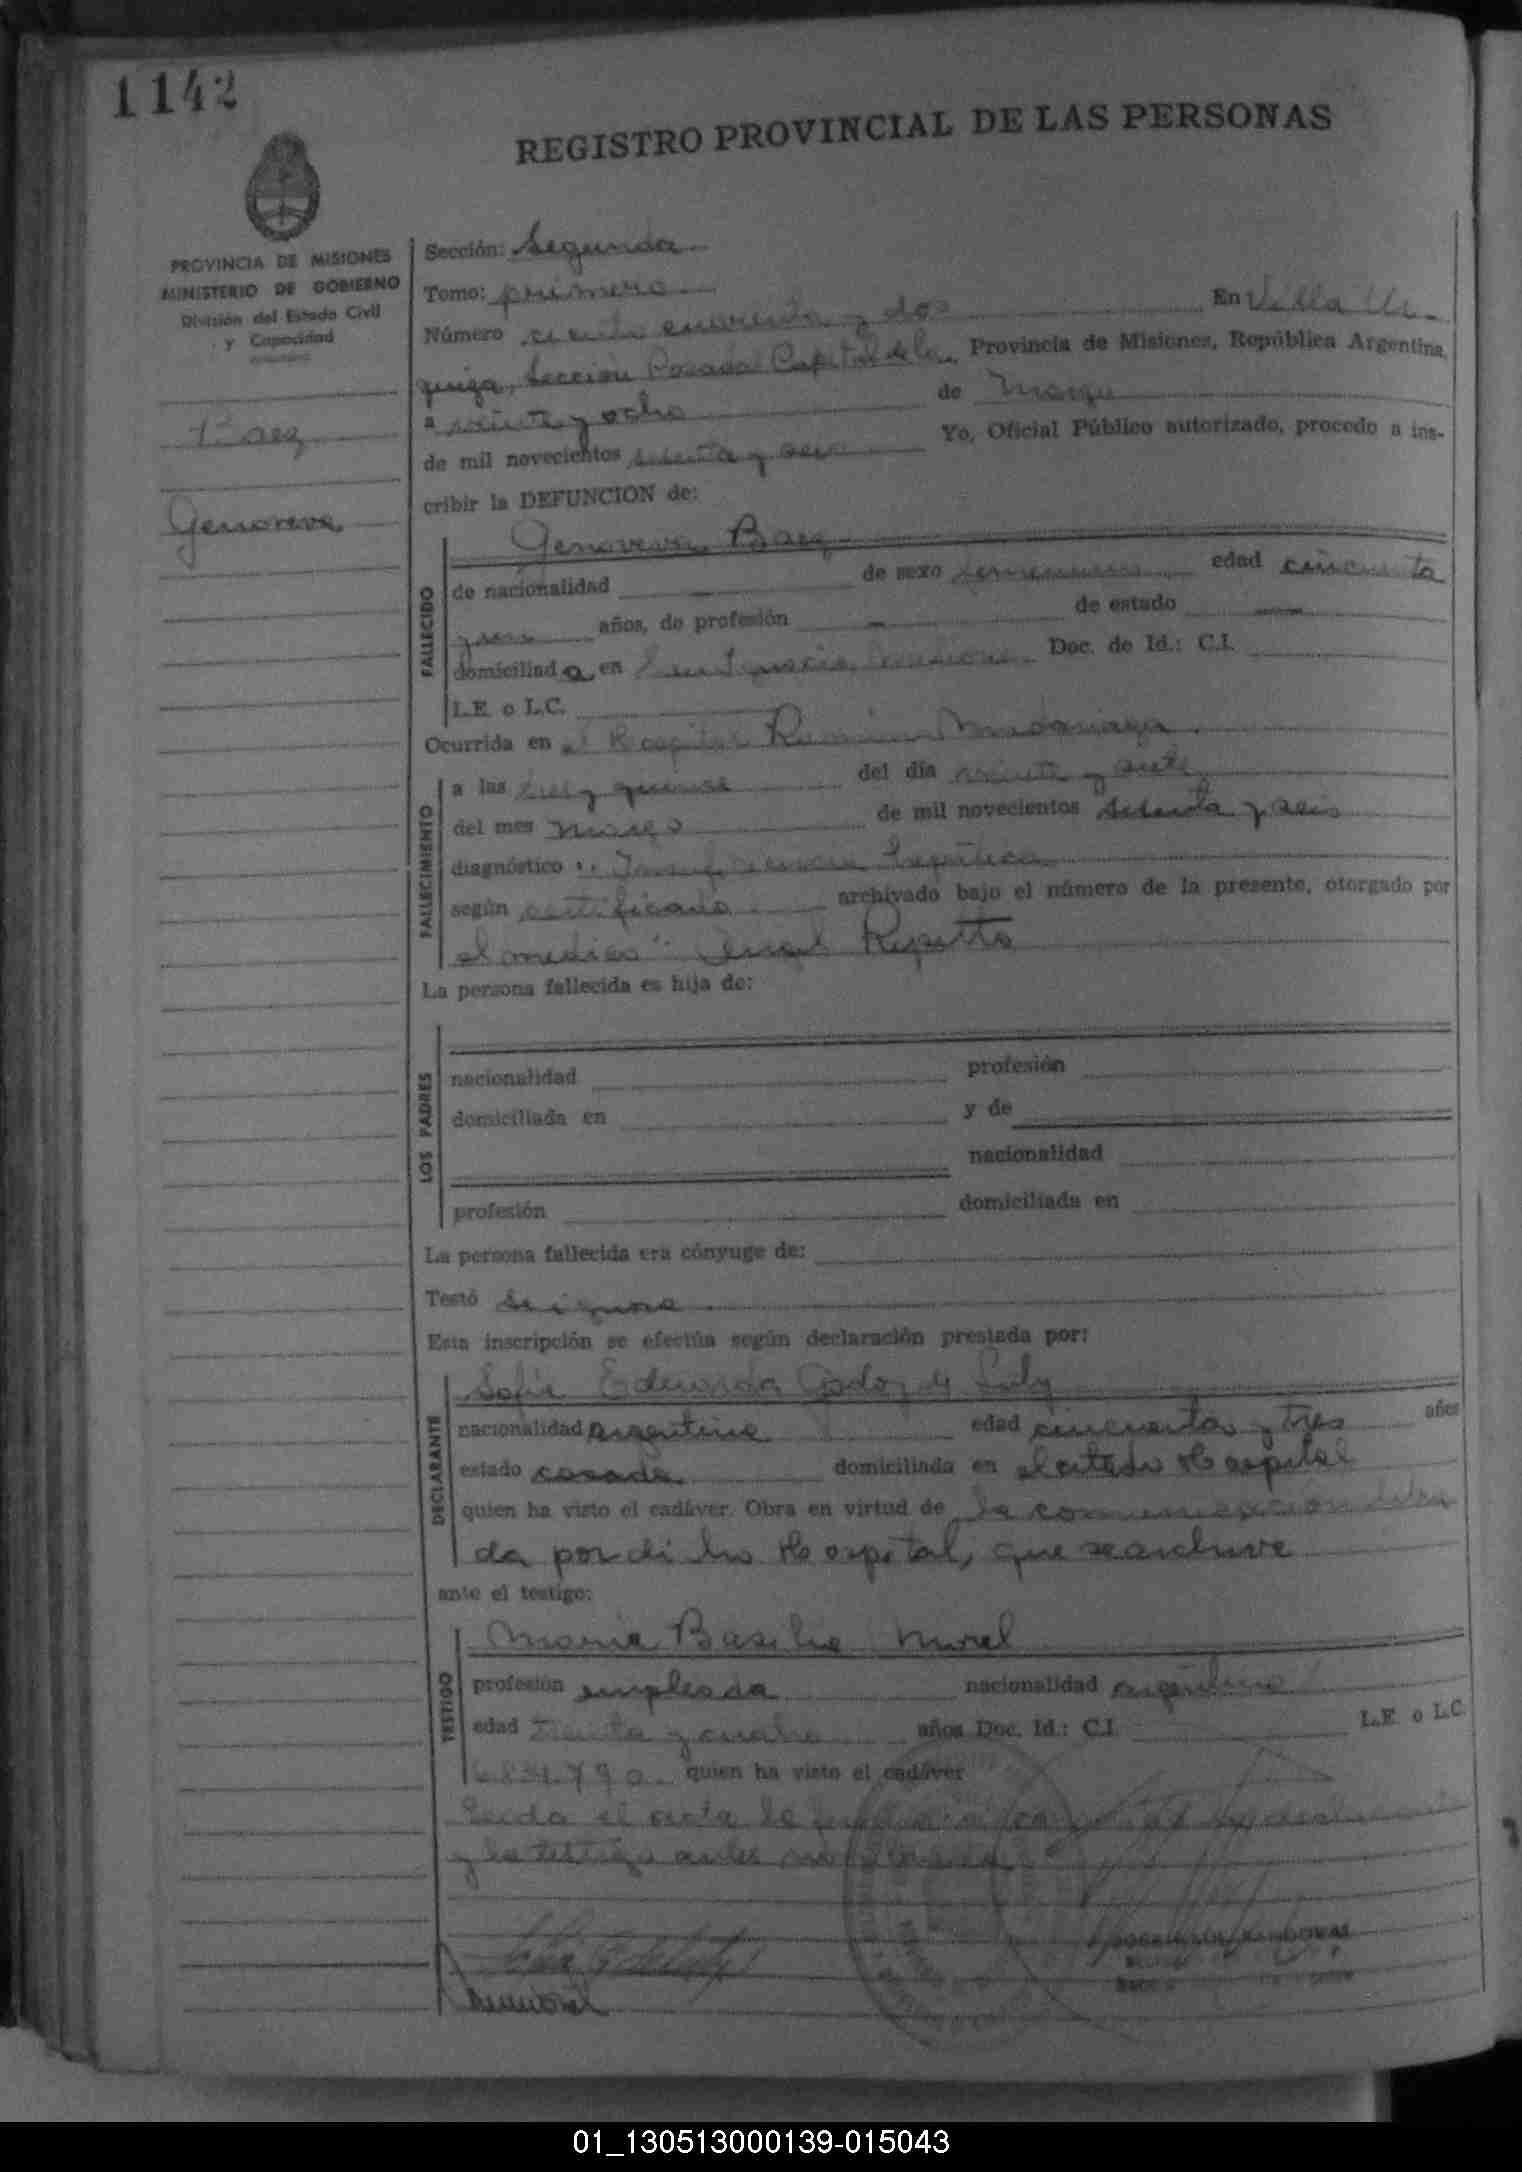 1142
REGISTRO PROVINCIAL DE LAS PERSONAS
PROVINCIA DE MISIONES
MINISTERIO DE GOBIERNO
División del Estado Civil
y Capacidad
Baez
Genoveva
Sección: Segunda
Tomo: primero
Número ciento cuarenta y dos En Villa Ur-
quiza, Sección Posadas Capital de la Provincia de Misiones, República Argentina,
a veinte y ocho de Marzo
de mil novecientos setenta y seis Yo, Oficial Público autorizado, procedo a ins-
cribir la DEFUNCION de:
FALLECIDO
Genoveva Baez
de nacionalidad — de sexo femenino edad cincuenta
años, de profesión — de estado —
domiciliada en San Ignacio, Misiones Doc. de Id.: C.I.
L.E. o L.C.
Ocurrida en el Hospital Ramón Madariaga
FALLECIMIENTO
a las tres y quince del día veinte y siete
del mes marzo de mil novecientos setenta y seis
diagnóstico : Insuficiencia hepática
según certificado archivado bajo el número de la presente, otorgado por
el médico: Angel Repetto
La persona fallecida es hija de:
LOS PADRES
nacionalidad profesión
domiciliada en y de
nacionalidad
profesión domiciliada en
La persona fallecida era cónyuge de:
Testó se ignora
Esta inscripción se efectúa según declaración prestada por:
DECLARANTE
Sofia Eduarda Godoy de
nacionalidad argentina edad cincuenta y tres años
estado casada domiciliada en el citado Hospital
quien ha visto el cadáver. Obra en virtud de la comunicación libra
da por dicho Hospital, que se archiva
ante el testigo:
TESTIGO
Maria Basilia Morel
profesión empleada nacionalidad argentina
edad treinta y cuatro años Doc. Id.: C.I. L.E. o L.C.
6.834.790 quien ha visto el cadáver
Leida el acta la
y la testigo ante mi
01_130513000139-015043